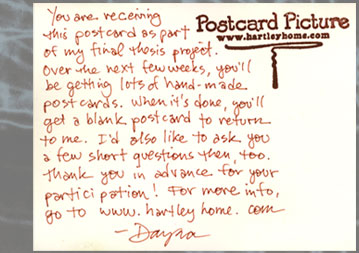 You are receiving
this postcard as part
of my final thesis project.
Over the next few weeks, you'll
be getting lots of hand-made
postcards. When it's done, you'll
get a blank postcard to return
to me. I'd also like to ask you
a few short questions then, too.
Thank you in advance for your
participation! For more info,
go to www.hartleyhome.com
-Dayna
Postcard Picture
www.hartleyhome.com